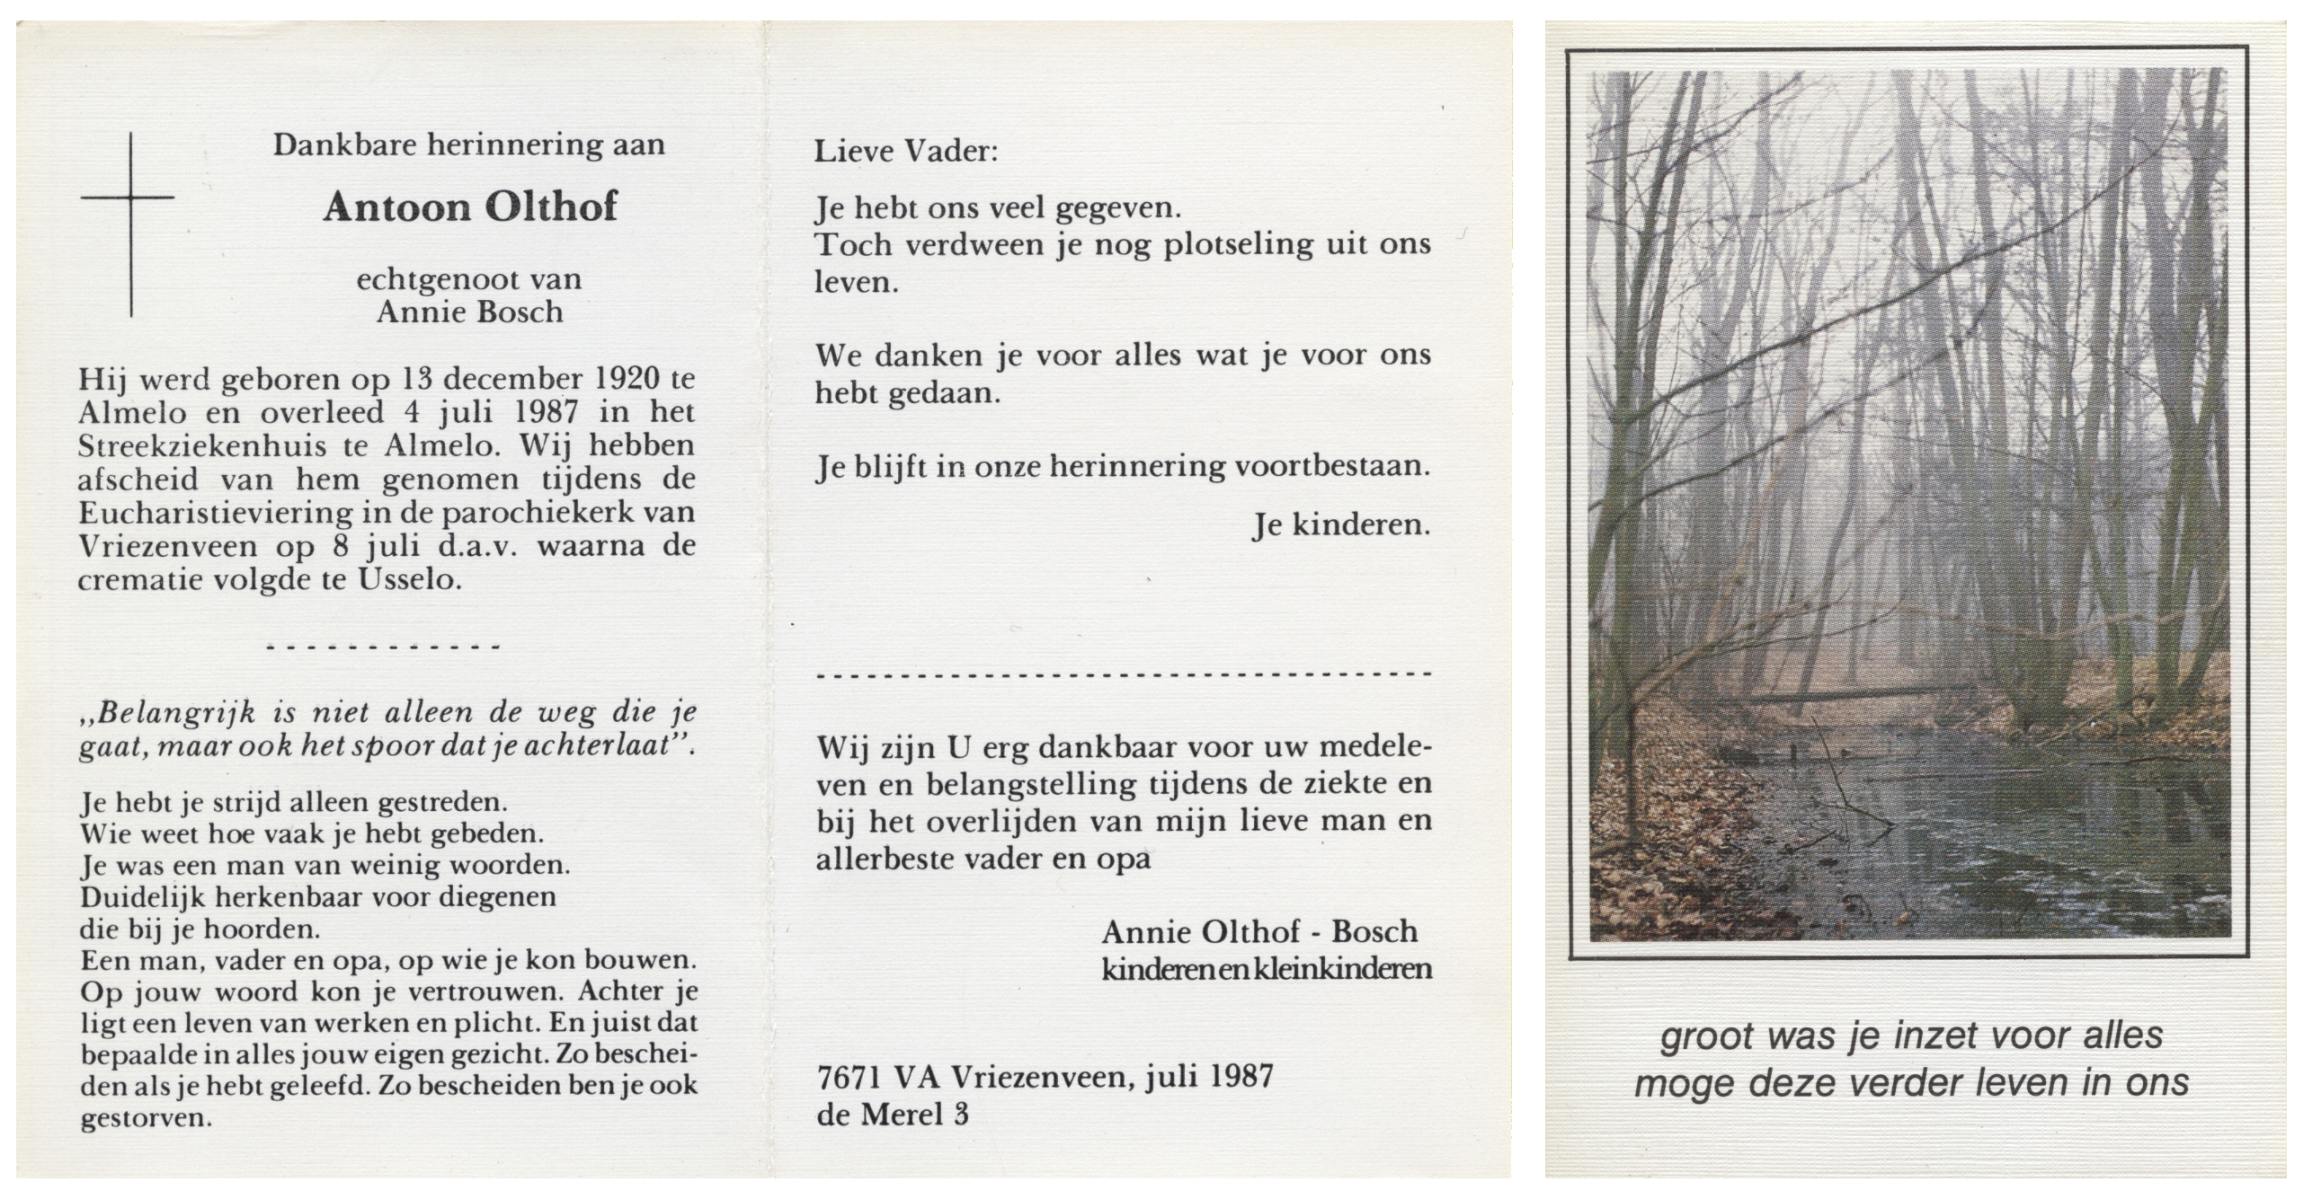 Dankbare herinnering aan
Antoon Olthof
echtgenoot van
Annie Bosch
Hij werd geboren op 13 december 1920 te
Almelo en overleed 4 juli 1987 in het
Streekziekenhuis te Almelo. Wij hebben
afscheid van hem genomen tijdens de
Eucharistieviering in de parochiekerk van
Vriezenveen op 8 juli d.a.v. waarna de
crematie volgde te Usselo.
- - - - - - - - - - - -
,,Belangrijk is niet alleen de weg die je
gaat, maar ook het spoor dat je achterlaat”.
Je hebt je strijd alleen gestreden.
Wie weet hoe vaak je hebt gebeden.
Je was een man van weinig woorden.
Duidelijk herkenbaar voor diegenen
die bij je hoorden.
Een man, vader en opa, op wie je kon bouwen.
Op jouw woord kon je vertrouwen. Achter je
ligt een leven van werken en plicht. En juist dat
bepaalde in alles jouw eigen gezicht. Zo beschei-
den als je hebt geleefd. Zo bescheiden ben je ook
gestorven.
Lieve Vader:
Je hebt ons veel gegeven.
Toch verdween je nog plotseling uit ons
leven.
We danken je voor alles wat je voor ons
hebt gedaan.
Je blijft in onze herinnering voortbestaan.
Je kinderen.
- - - - - - - - - - - - - - - - - - - - - - - - - - - - - - - - - - - - -
Wij zijn U erg dankbaar voor uw medele-
ven en belangstelling tijdens de ziekte en
bij het overlijden van mijn lieve man en
allerbeste vader en opa
Annie Olthof - Bosch
kinderen en kleinkinderen
7671 VA Vriezenveen, juli 1987
de Merel 3
groot was je inzet voor alles
moge deze verder leven in ons